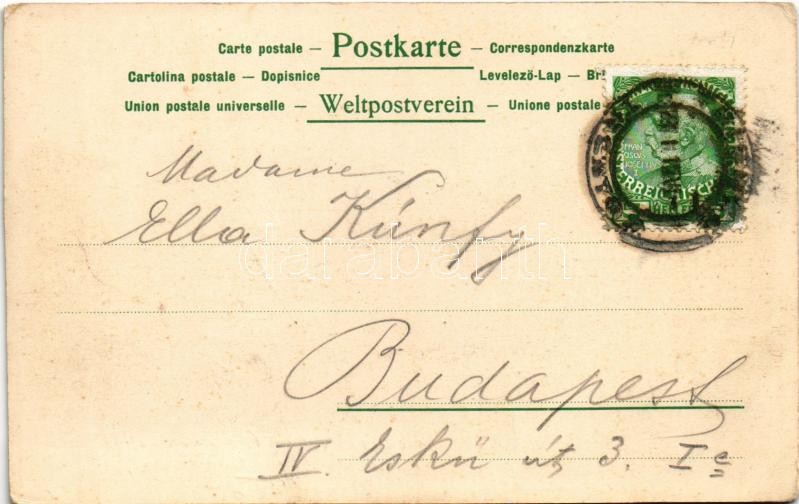 Carte postale – Postkarte – Correspondenzkarte
Cartolina postale – Dopisnice Levelező-Lap –
Union postale universelle – Weltpostverein – Unione postale
Madame
Ella Kúnfy
darabanth
Budapest
IV. Eskü út, 3. I e